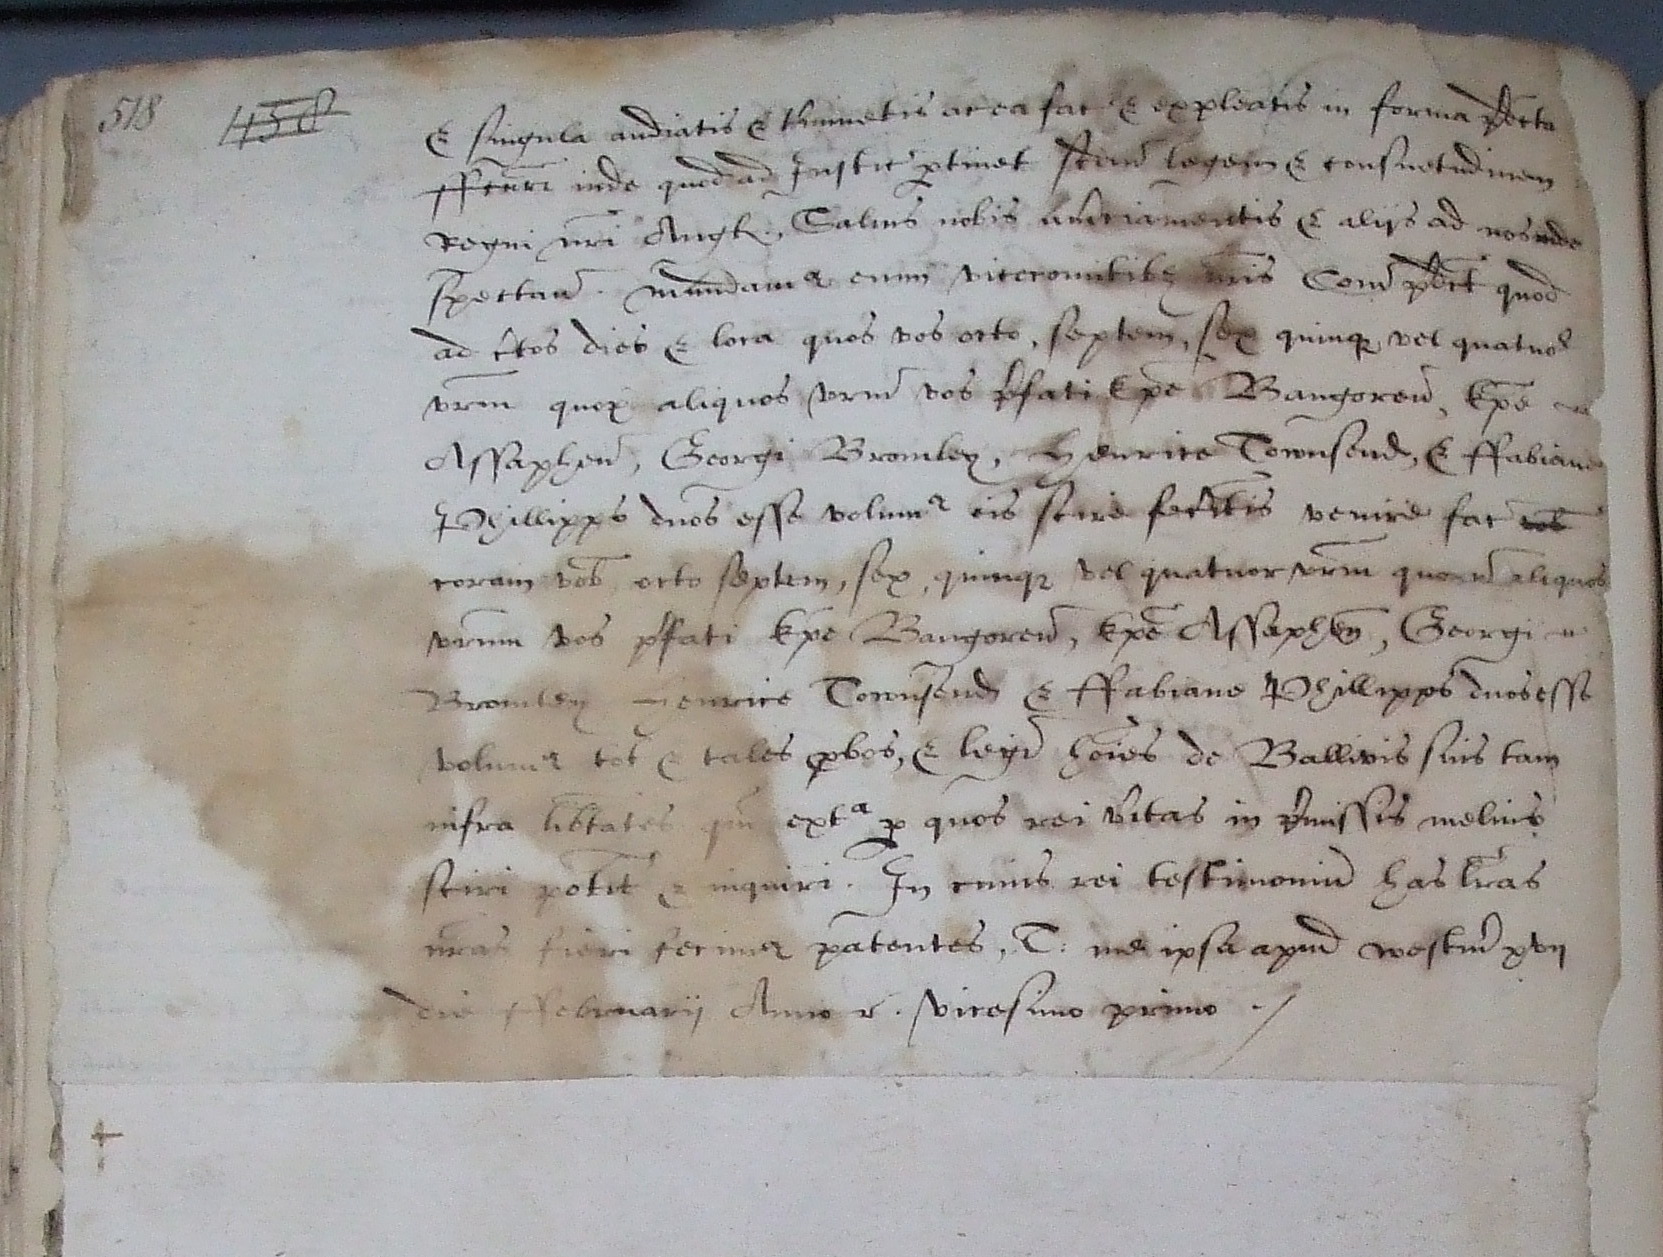 518 458
& singula audiatis & t'minetis ac ea fac' & expleatis in forma p'dcta
ffctur' inde quod ad Justic' ptinet scdm legem & consuetudinem
Regni nri Angl', Salvis nobis am'ciamentis & alijs ad nos inde
spectan'. Mandam' enim vicecomitib3 nris Com' p'dct quod
ad c'tos dies & loca quos vos octo, septem, sex quinq3 vel quatuor
vrm quor' aliquos vrm vos p'fati Epe Bangoren', Epe
Assaphen', Georgi Bromley, Henrice Townsend, & ffabiane
Phillipps duos esse volum' eis scire fec'itis venire fac' vob
coram vob octo septem, sex, quinq3 vel quatuor vrm quorum aliquos
vrum vos p'fati Epe Bangoren', Epe Assaphen', Georgi
Bromley Henrice Townsend & ffabiane Phillipps duos esse
volum' tot & tales pbos, & legal' hoies de Ballivis suis tam
infra lib'tates qm ext^a p quos rei v'itas in p'missis melius
sciri pot'it & inquiri. In cuius rei testimonium has l'ras
nras fieri fecim' patentes, T: me ipsa apud westm' xvij
die ffebruarij Anno r. vicesimo primo ./
+